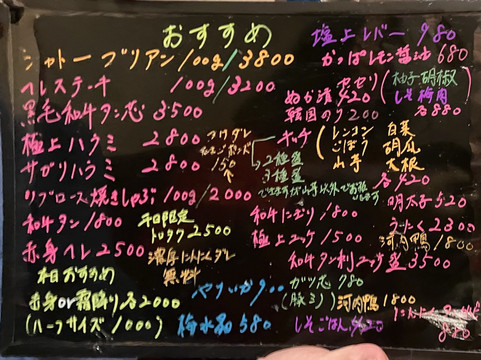 おすすめ
シャトーブリアン 100g/3800
ヘレステーキ 100g/3200
黒毛和牛タン芯 3500
極上ハラミ 2800
サガリハラミ 2800
150
リブロース焼きしゃぶ 100g/2000
和牛タン 1800
赤身ヘレ 2500
平日限定
トロタク 2500
濃厚にんにくダレ
無料
本日おすすめ
赤身or霜降り 各2000
(ハーフサイズ 1000)
やりいか 900
梅水晶 580
塩上レバー 980
かっぱレモン醤油 680
セセリ(柚子胡椒
しそ梅肉
各880
ぬか漬 420
韓国のり 200
キムチ
レンコン
ごぼう
山芋
白菜
胡瓜
大根
各420
2種盛
3種盛
明太子 520
和牛にぎり 1800
極上ユッケ 1500
うにく 2300
河内鴨 1800
和牛刺ユッケ盛 3500
ガツ芯 980
(豚ミノ)
河内鴨 1800
しそごはん 420
880